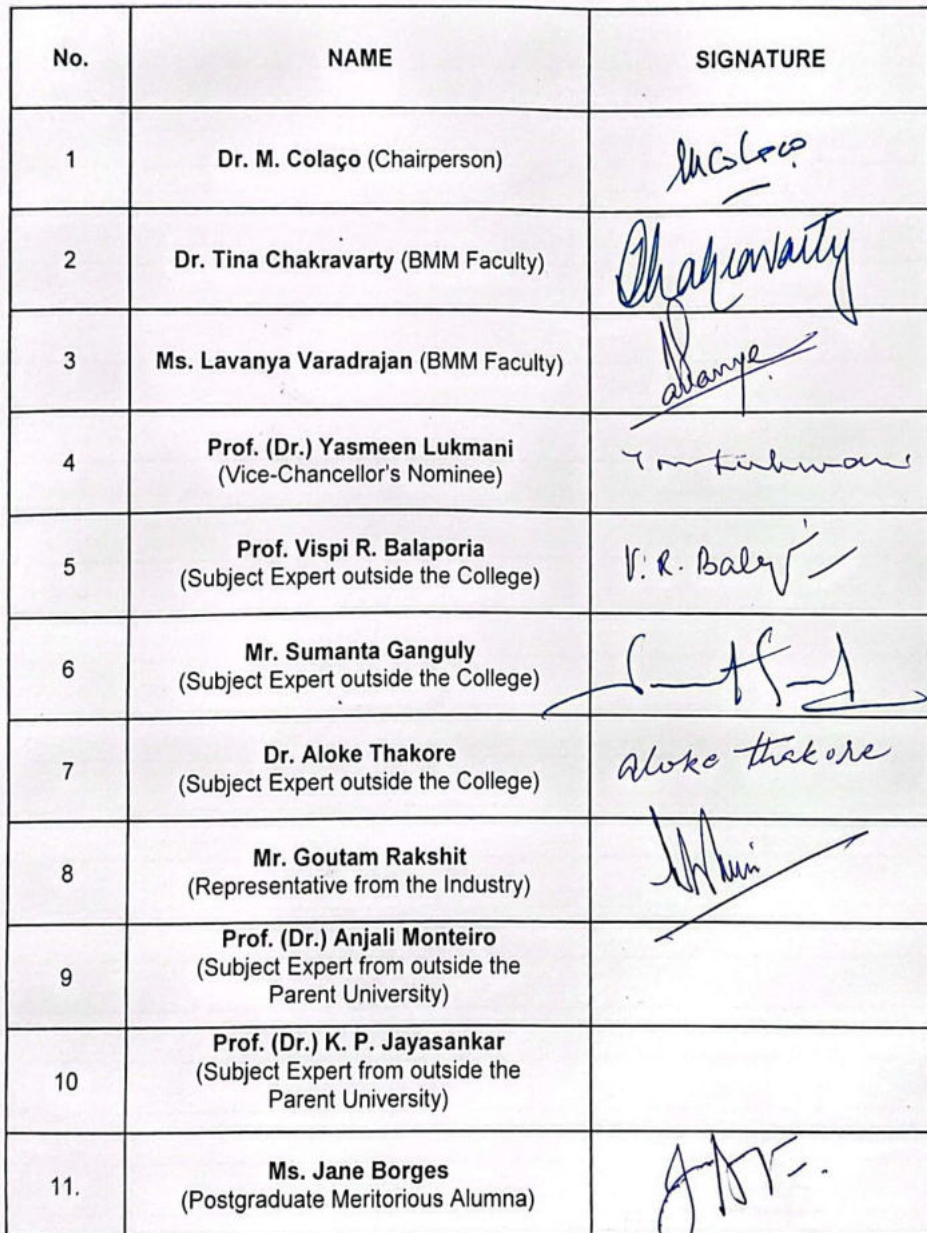 No. NAME SIGNATURE
1 Dr. M. Colaço (Chairperson) MColaço
2 Dr. Tina Chakravarty (BMM Faculty) Chakravarty
3 Ms. Lavanya Varadrajan (BMM Faculty)
4 Prof. (Dr.) Yasmeen Lukmani
(Vice-Chancellor's Nominee) Lukmani
5 Prof. Vispi R. Balaporia
(Subject Expert outside the College) V. R.
6 Mr. Sumanta Ganguly
(Subject Expert outside the College)
7 Dr. Aloke Thakore
(Subject Expert outside the College) Aloke Thakore
8 Mr. Goutam Rakshit
(Representative from the Industry)
9 Prof. (Dr.) Anjali Monteiro
(Subject Expert from outside the
Parent University)
10 Prof. (Dr.) K. P. Jayasankar
(Subject Expert from outside the
Parent University)
11. Ms. Jane Borges
(Postgraduate Meritorious Alumna)